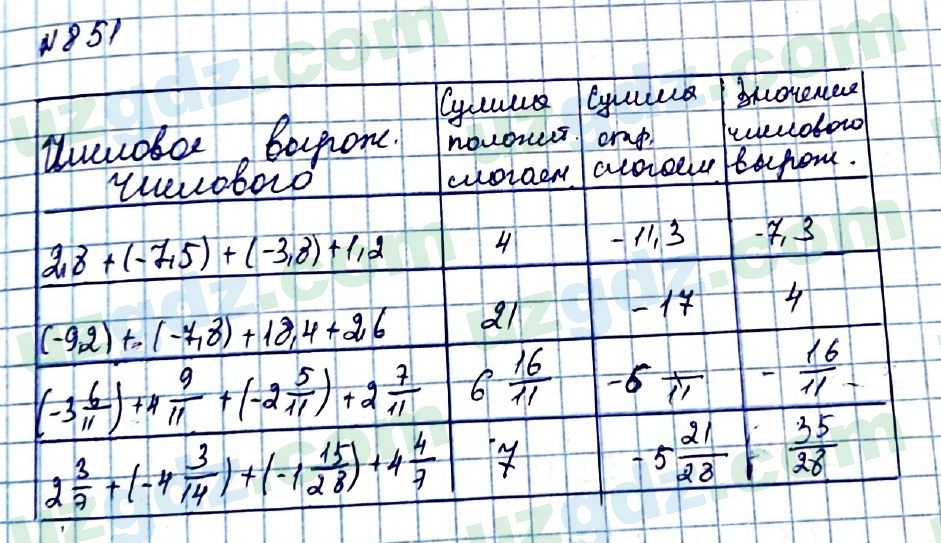 №851
Числовое вырож. числового | Сумма положит. слогаем | Сумма отр. слогаем | Значения числового вырож.
2,8 + (-7,5) + (-3,8) + 1,2 | 4 | -11,3 | -7,3
(-9,2) + (-7,8) + 18,4 + 2,6 | 21 | -17 | 4
(-3 6/11) + 4 9/11 + (-2 5/11) + 2 7/11 | 6 16/11 | | - 16/11
2 3/7 + (-4 3/14) + (-1 15/28) + 4 4/7 | 7 | -5 21/28 | 35/28
uzgdz.com